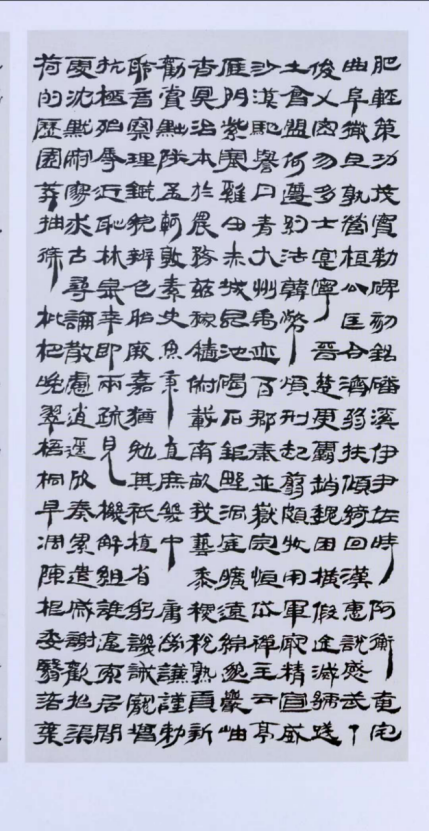 肥輕策功茂實勒碑刻銘磻溪伊尹佐時阿衡奄宅
曲阜微旦孰營桓公匡合濟弱扶傾綺回漢惠說感武丁
俊乂密勿多士寔寧晉楚更霸趙魏困橫假途滅虢踐
土會盟何遵約法韓弊煩刑起翦頗牧用軍最精宣威
沙漠馳譽丹青九州禹迹百郡秦並嶽宗恒岱禪主云亭
雁門紫塞雞田赤城昆池碣石鉅野洞庭曠遠綿邈巖岫
杳冥治本於農務茲稼穡俶載南畝我藝黍稷稅熟貢新
勸賞黜陟孟軻敦素史魚秉直庶幾中庸勞謙謹勑
聆音察理鑑貌辨色貽厥嘉猷勉其祗植省躬譏誡寵增
抗極殆辱近恥林皋幸即兩疏見機解組誰逼索居閒
處沈默寂寥求古尋論散慮逍遙欣奏累遣慼謝歡招渠
荷的歷園莽抽條枇杷晚翠梧桐早凋陳根委翳落葉